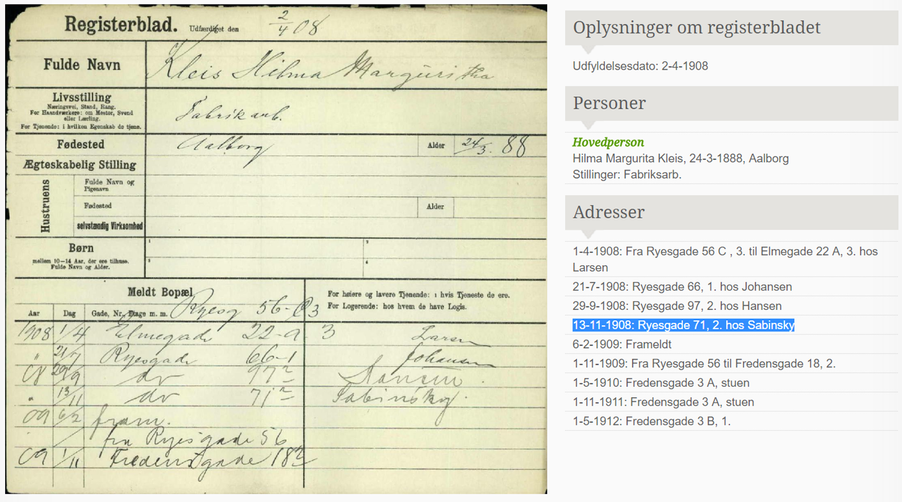 Registerblad. Udfærdiget den 2/4 08
Fulde Navn
Kleis Hilma Margüritha
Livsstilling
Næringsvej, Stand, Rang.
For Haandværkere: om Mester, Svend
eller Lærling.
For Tjenende: i hvilken Egenskab de tjene.
Fabrikarb.
Fødested
Aalborg
Alder 24/3. 88
Ægteskabelig Stilling
Hustruens
Fulde Navn og
Pigenavn
Fødested
Alder
selvstændig Virksomhed
Børn
mellem 10-14 Aar, der ere tilhuse.
Fulde Navn og Alder.
1
2
Meldt Bopæl
Ryesg 56-C3
For høiere og lavere Tjenende: i hvis Tjeneste de ere.
For Logerende: hos hvem de have Logis.
Aar Dag Gade, Nr., Etage m. m.
1908 1/4 Elmegade 22-A 3 Larsen
" 21/7 Ryesgade 66-1 Johansen
08 29/9 do 97 2 Hansen.
" 13/11 do 71 2 Sabinsky.
09 6/2 fram.
fra Ryesgade 56
09 1/11 Fredensgade 18 2
Oplysninger om registerbladet
Udfyldelsesdato: 2-4-1908
Personer
Hovedperson
Hilma Margurita Kleis, 24-3-1888, Aalborg
Stillinger: Fabriksarb.
Adresser
1-4-1908: Fra Ryesgade 56 C , 3. til Elmegade 22 A, 3. hos
Larsen
21-7-1908: Ryesgade 66, 1. hos Johansen
29-9-1908: Ryesgade 97, 2. hos Hansen
13-11-1908: Ryesgade 71, 2. hos Sabinsky
6-2-1909: Frameldt
1-11-1909: Fra Ryesgade 56 til Fredensgade 18, 2.
1-5-1910: Fredensgade 3 A, stuen
1-11-1911: Fredensgade 3 A, stuen
1-5-1912: Fredensgade 3 B, 1.